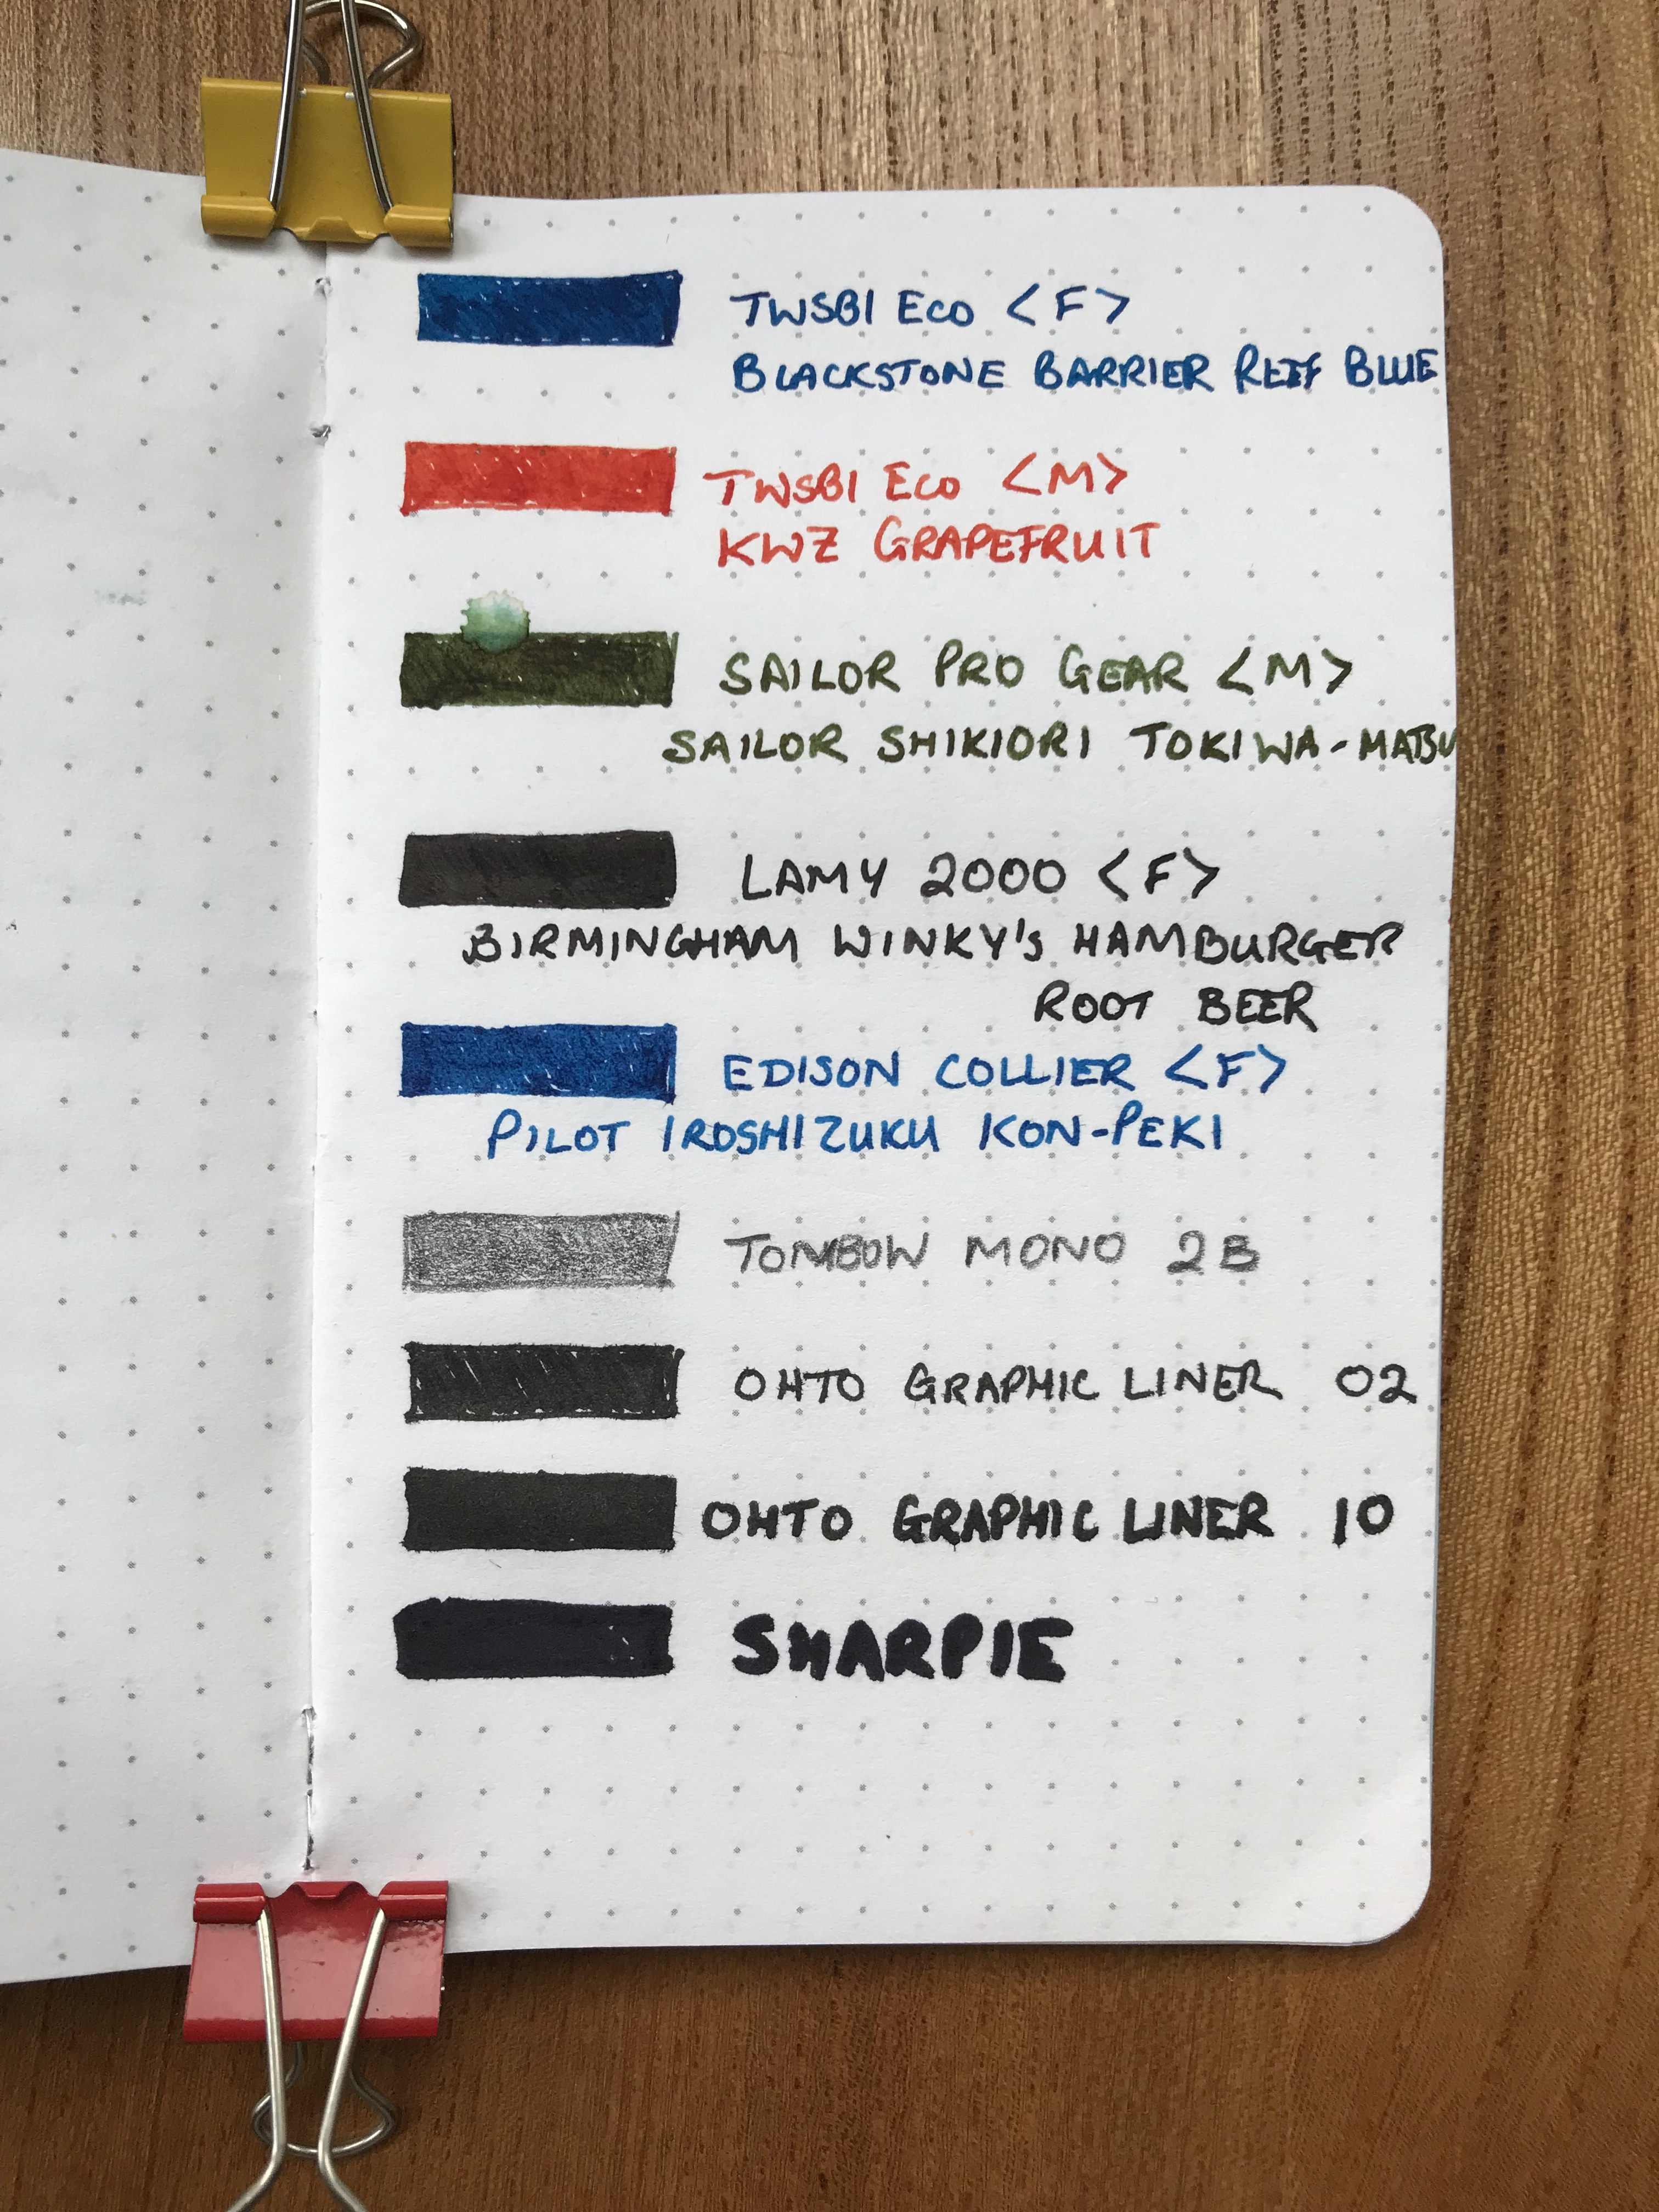 TWSBI ECO <F>
BLACKSTONE BARRIER REEF BLUE
TWSBI ECO <M>
KWZ GRAPEFRUIT
SAILOR PRO GEAR <M>
SAILOR SHIKIORI TOKIWA-MATSU
LAMY 2000 <F>
BIRMINGHAM WINKY'S HAMBURGER
ROOT BEER
EDISON COLLIER <F>
PILOT IROSHIZUKU KON-PEKI
TOMBOW MONO 2B
OHTO GRAPHIC LINER 02
OHTO GRAPHIC LINER 10
SHARPIE